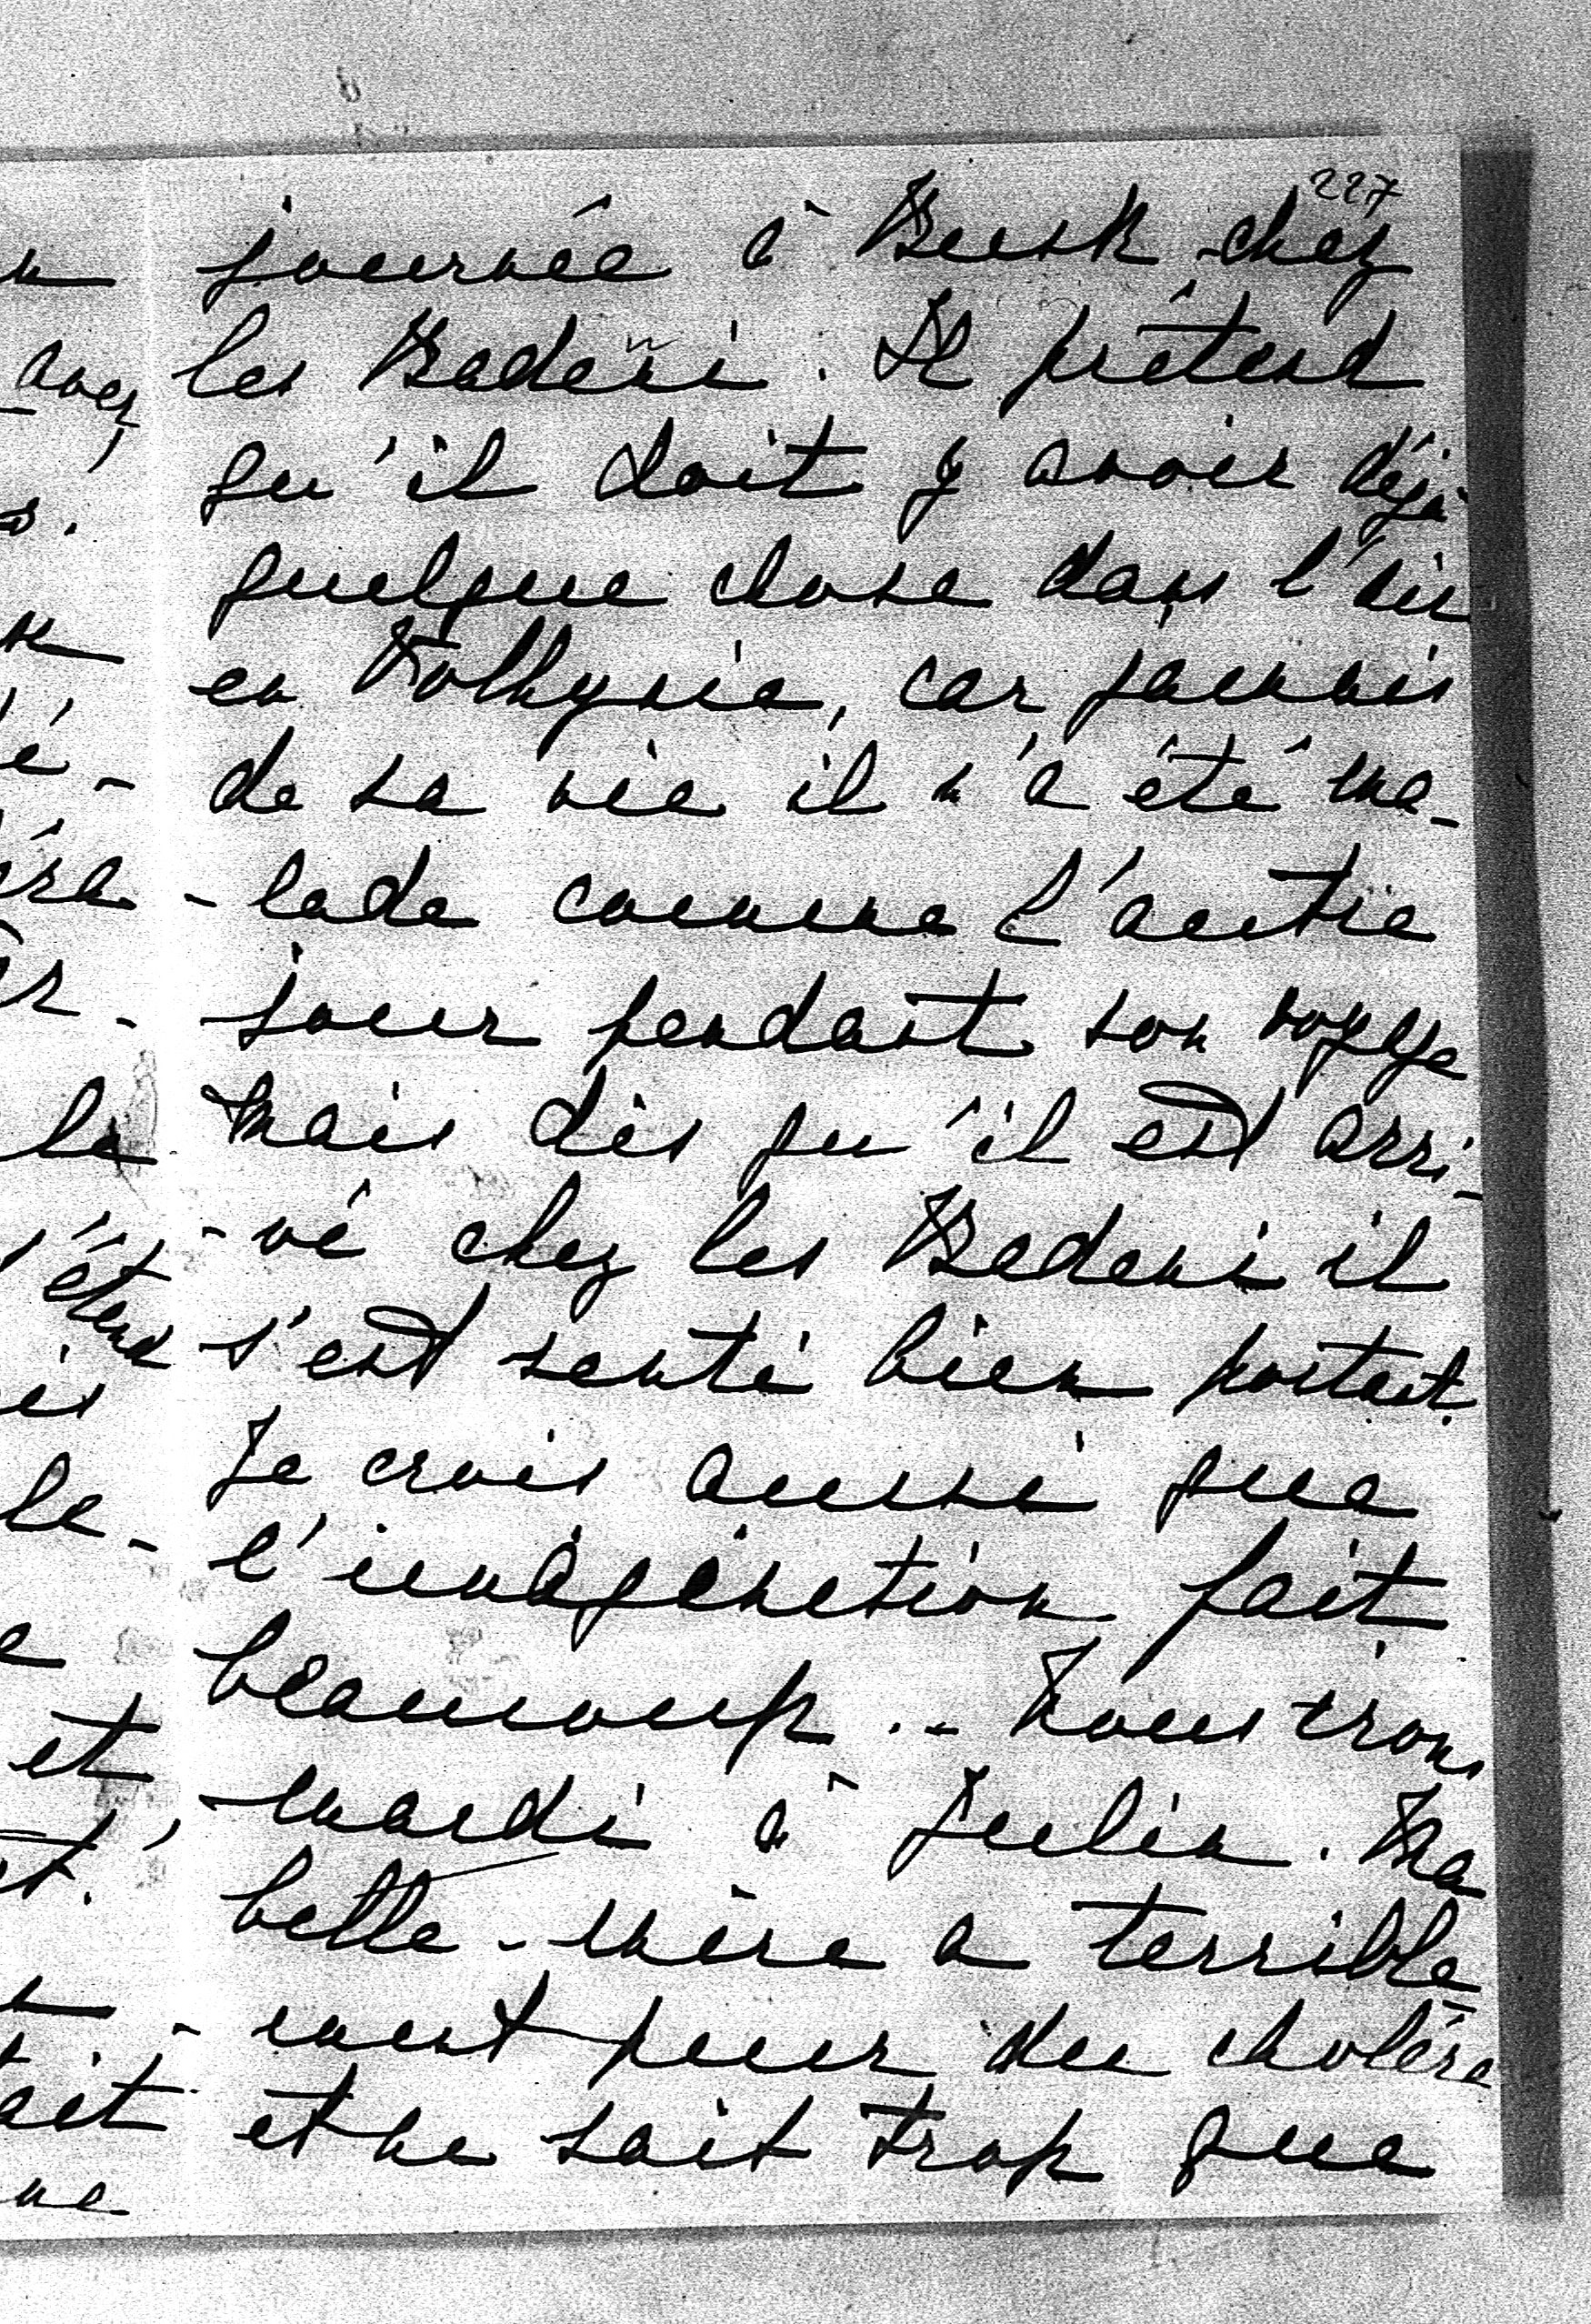 227
journée à Busk chez
les Badeni. Il prétend
qu'il doit y avoir déjà
quelque chose dans l'air
en Volhynie, car jamais
de sa vie il n'a été ma-
-lade comme l'autre
jour pendant son voyage
mais dès qu'il est arri-
-vé chez les Badeni il
s'est senti bien portant.
Je crois aussi que
l'imagination fait
beaucoup .. Nous irons
mardi à Julin. Ma
belle-mère a terrible-
-ment peur du choléra
et ne sait trop que
avez
la
étend
le-
et